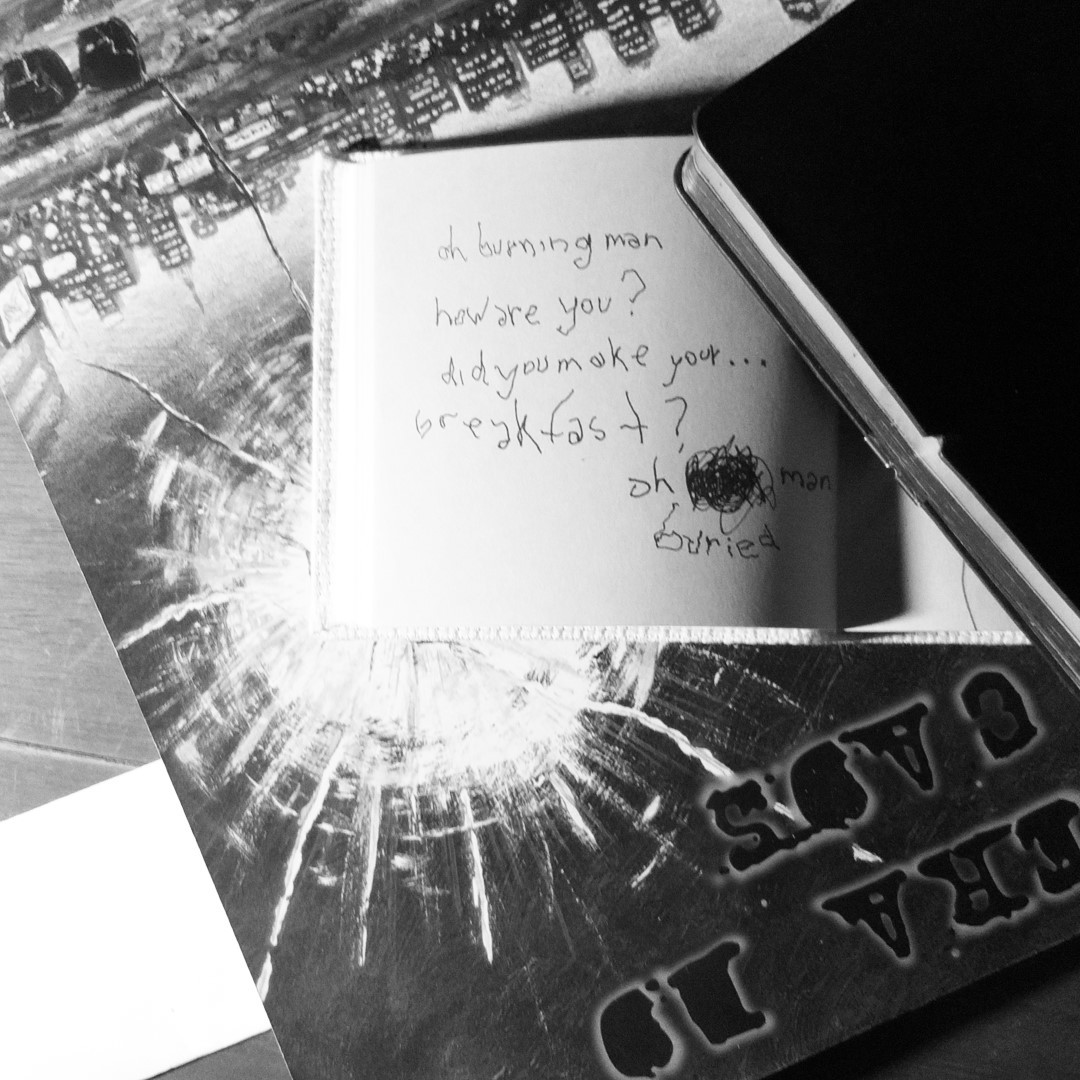 oh burning man
how are you?
did you make your...
breakfast?
oh man
buried
ERA
CAOS